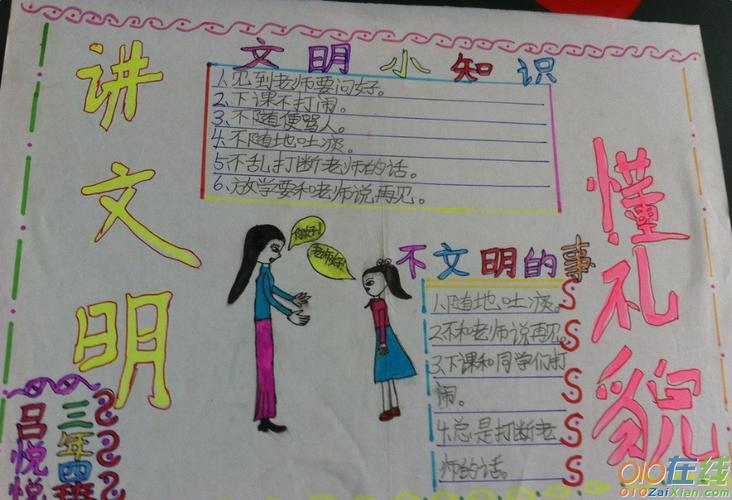 讲文明
文明小知识
1、见到老师要问好。
2、下课不打闹。
3、不随便骂人。
4、不随地吐痰。
5、不乱打断老师的话。
6、放学要和老师说再见。
懂礼貌
你好!
老师好!
不文明的事
1、随地吐痰。
2、不和老师说再见。
3、下课和同学们打
闹。
4、总是打断老
师的话。
三年四班
吕悦悦
010在线
010ZaiXian.com